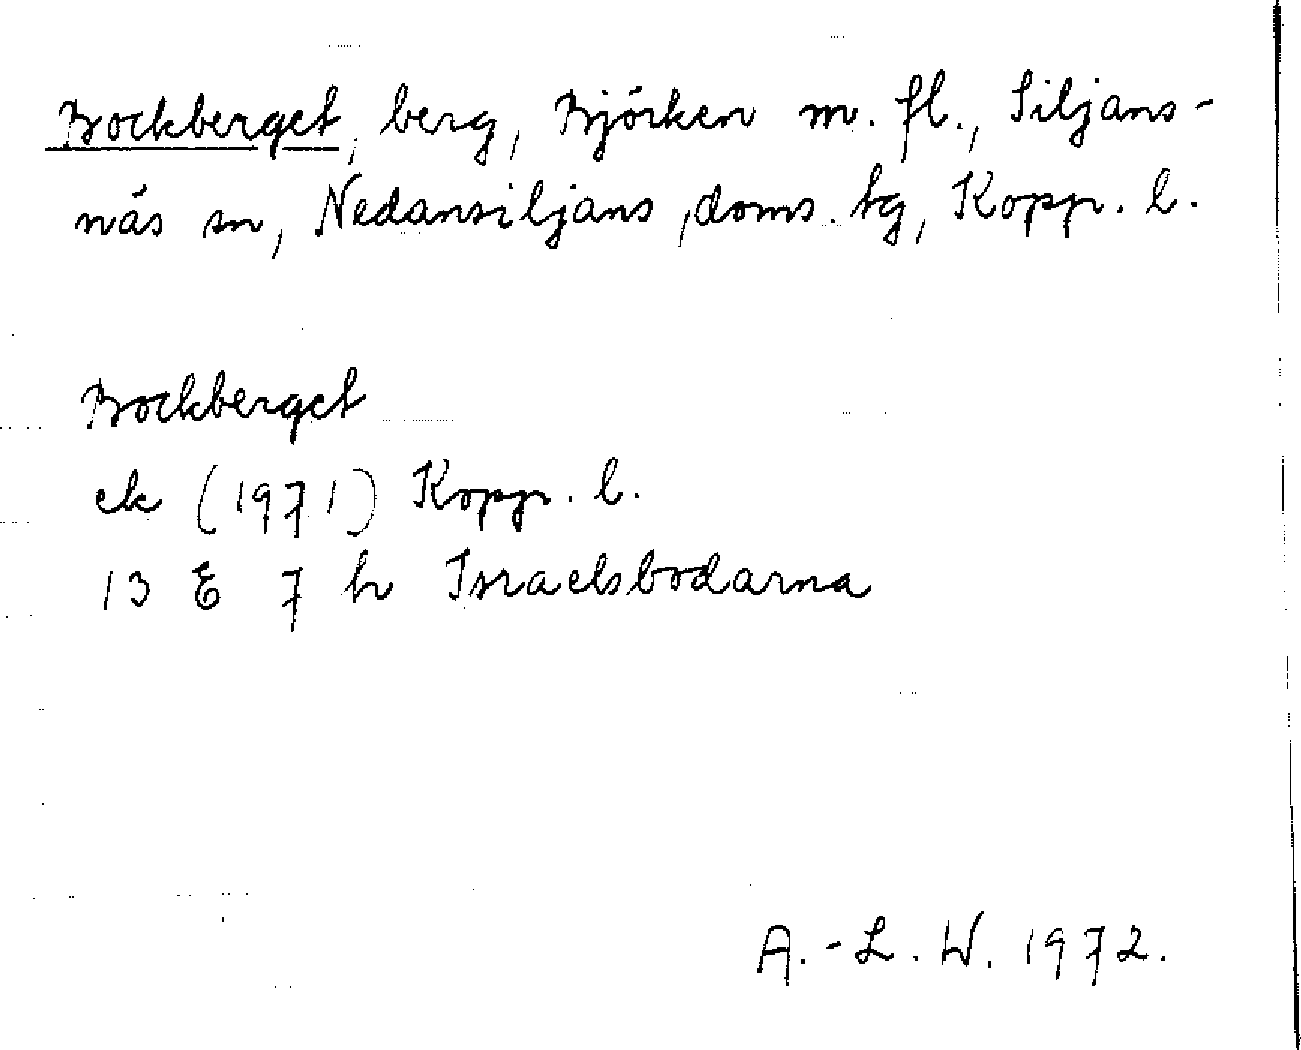 Bockberget, berg, Björken m. fl., Siljans-
näs sn, Nedansiljans doms. tg, Kopp. l.
Bockberget
ek (1971) Kopp. l.
13 E 7 h Israelsbodarna
A.-L. W. 1972.